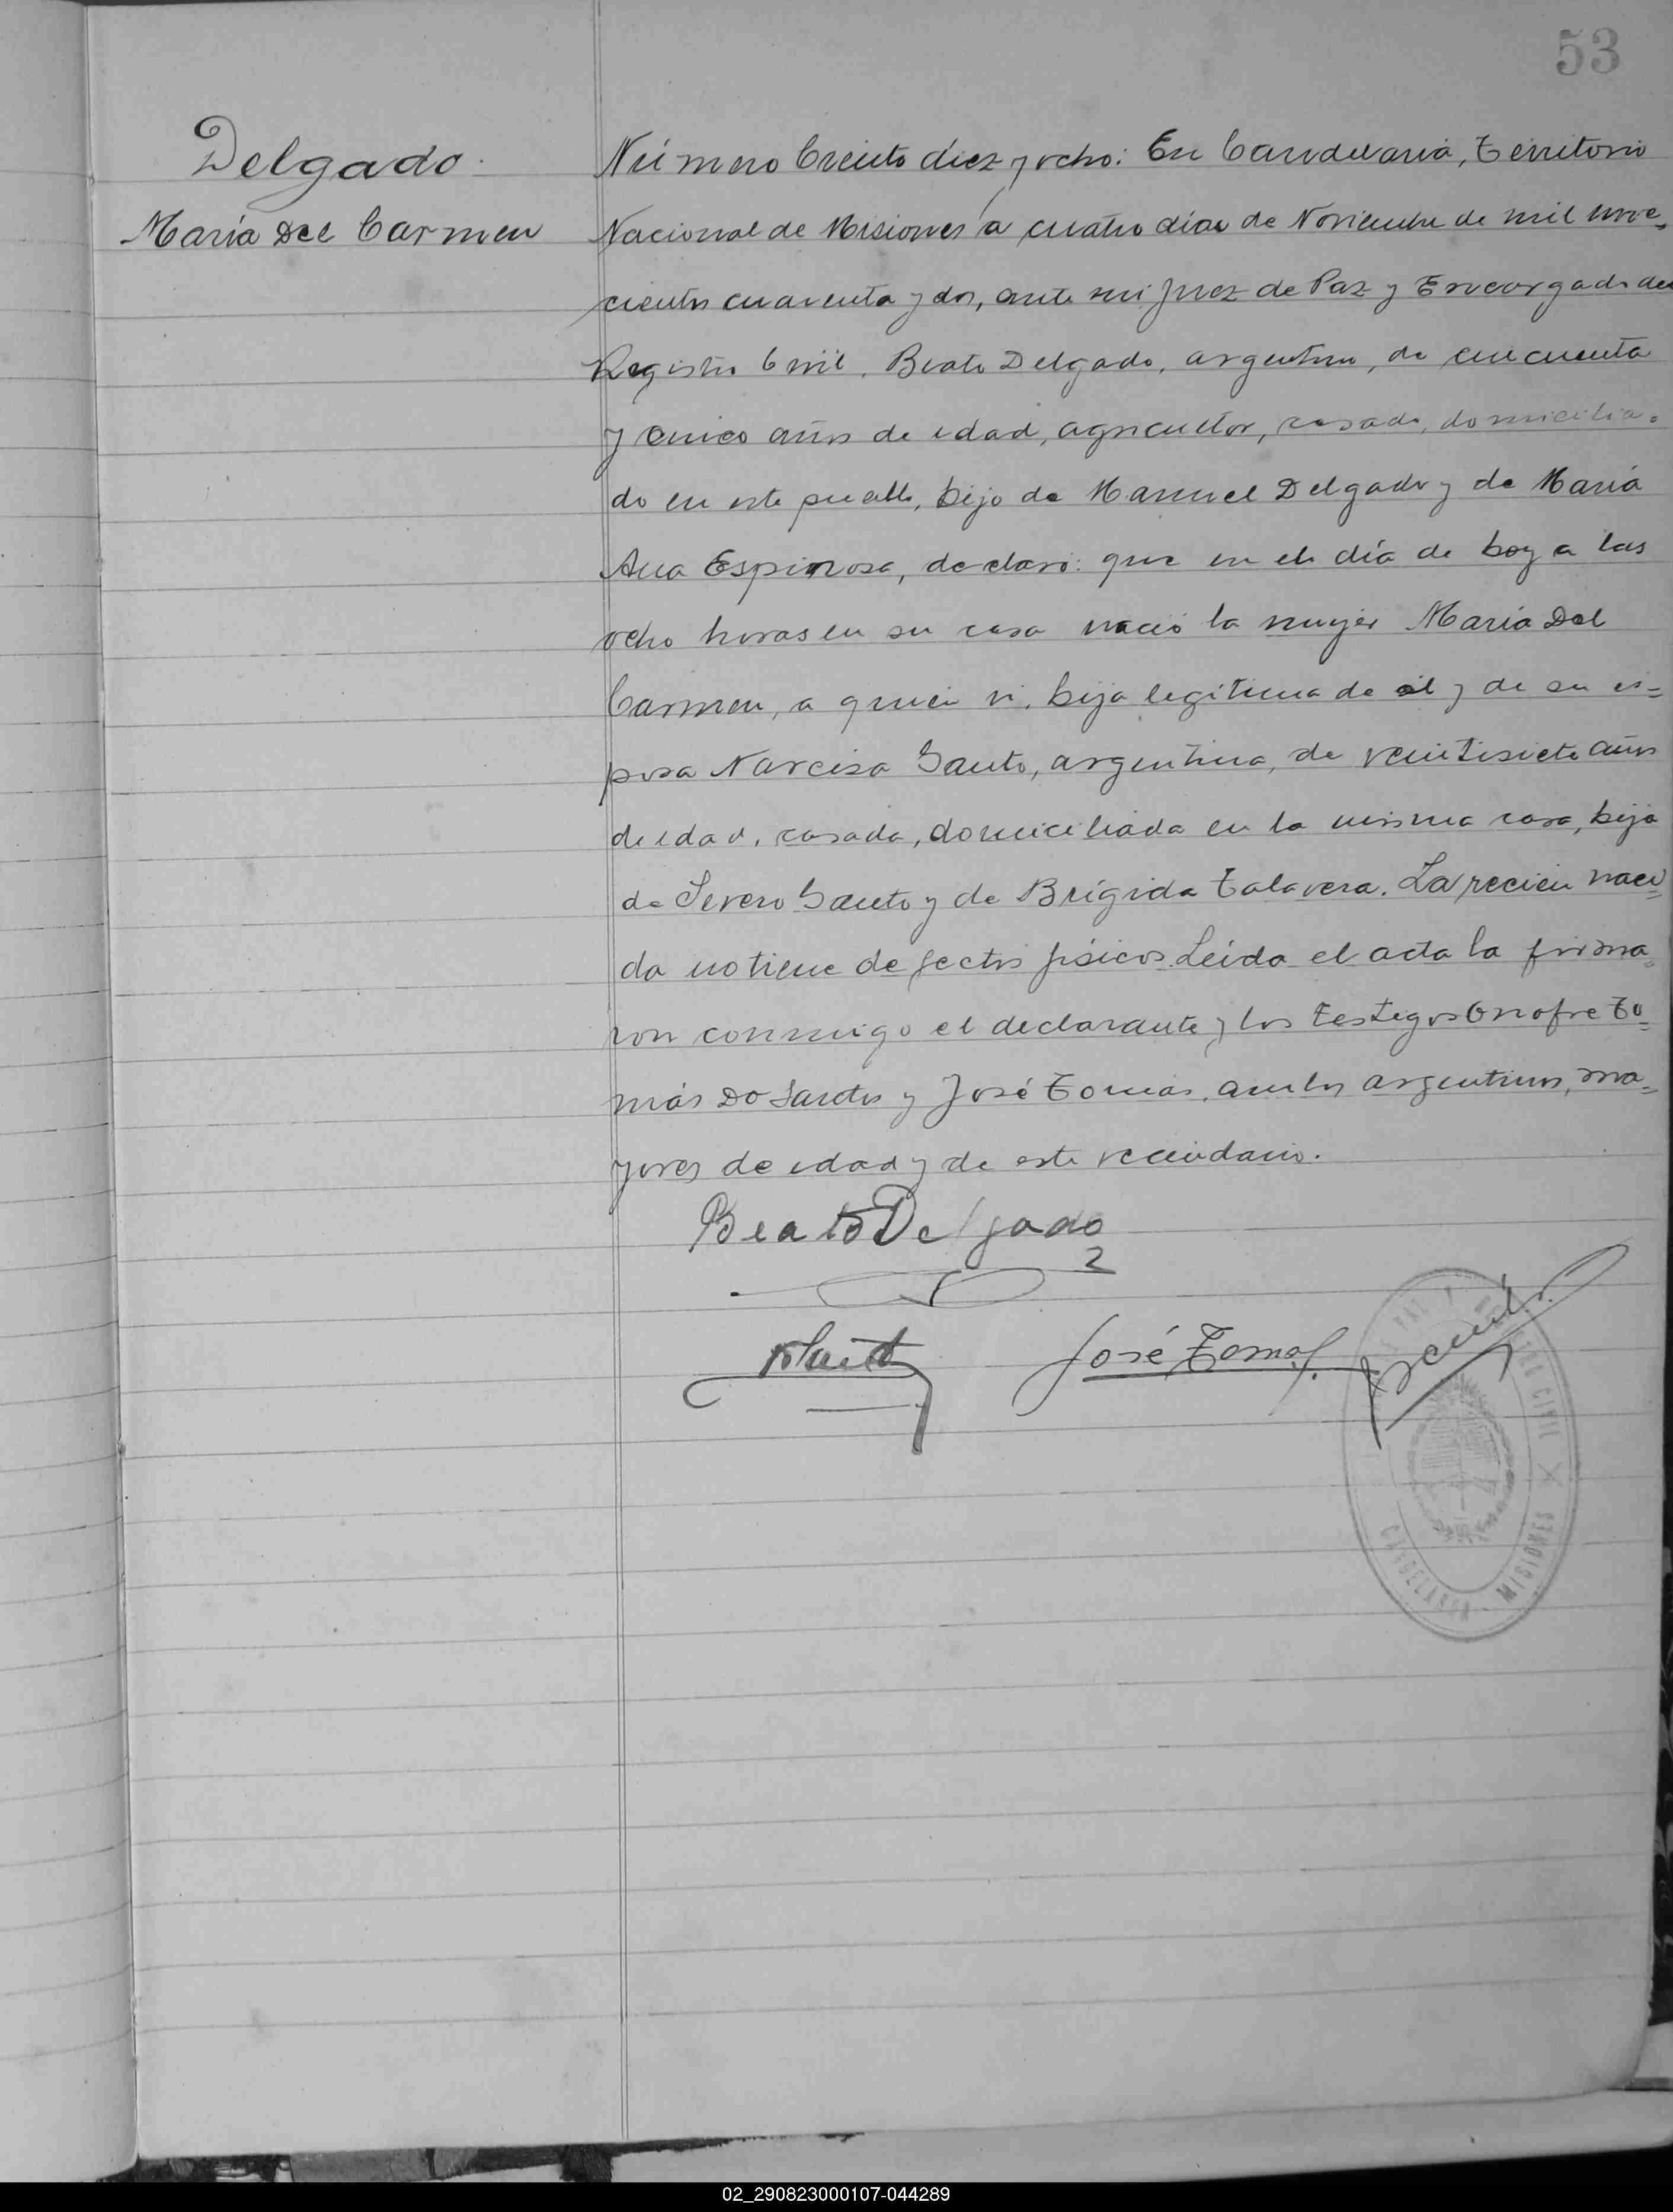 53
Delgado.
María Del Carmen
Número Ciento diez y ocho: En Candelaria, Territorio
Nacional de Misiones a cuatro días de Noviembre de mil nove-
cientos cuarenta y dos, ante mi Juez de Paz y Encargado del
Registro Civil, Beato Delgado, argentino, de cincuenta
y cinco años de edad, agricultor, casado, domicilia-
do en este pueblo, hijo de Manuel Delgado y de María
Ana Espinosa, declaró: que en el día de hoy a las
ocho horas en su casa nació la mujer María Del
Carmen, a quien vi, hija legitima de el y de su es-
posa Narcisa Sauto, argentina, de veintisiete años
de edad, casada, domiciliada en la misma casa, hija
de Severo Sauto y de Brígida Talavera. La recien naci-
da no tiene defectos físicos. Leída el acta la firma-
ron conmigo el declarante y los testigos Onofre To-
más Do Santos y José Tomás, ambos argentinos, ma-
yores de edad y de este vecindario.
Beato Delgado
José Tomas.
CANDELARIA - MISIONES
02_290823000107-044289